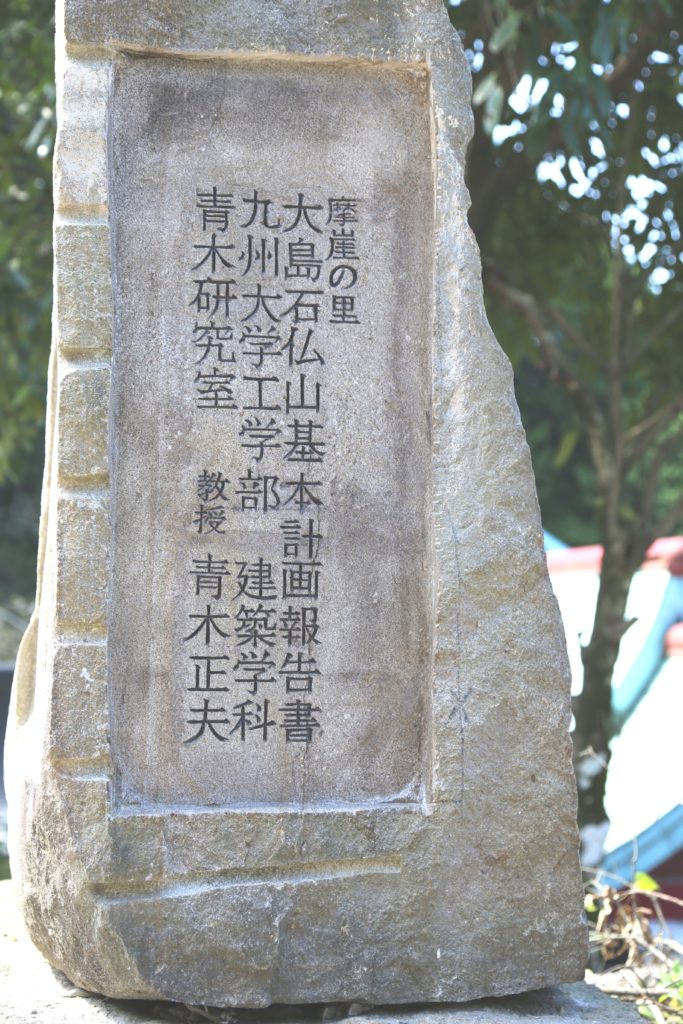 摩崖の里
大島石仏山基本計画報告書
九州大学工学部 建築学科
青木研究室 教授 青木正夫